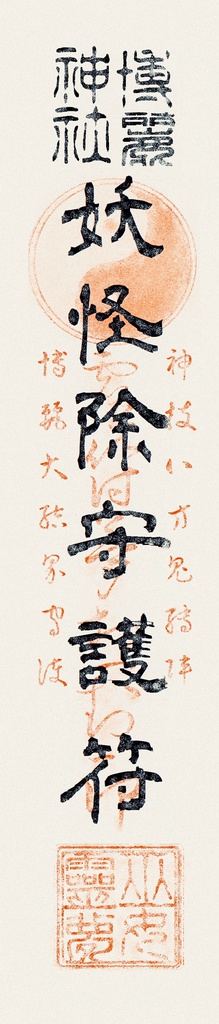 博麗
神社
神技八方鬼縛陣
妖怪除守護符
博麗大結界守護
巫女
靈夢